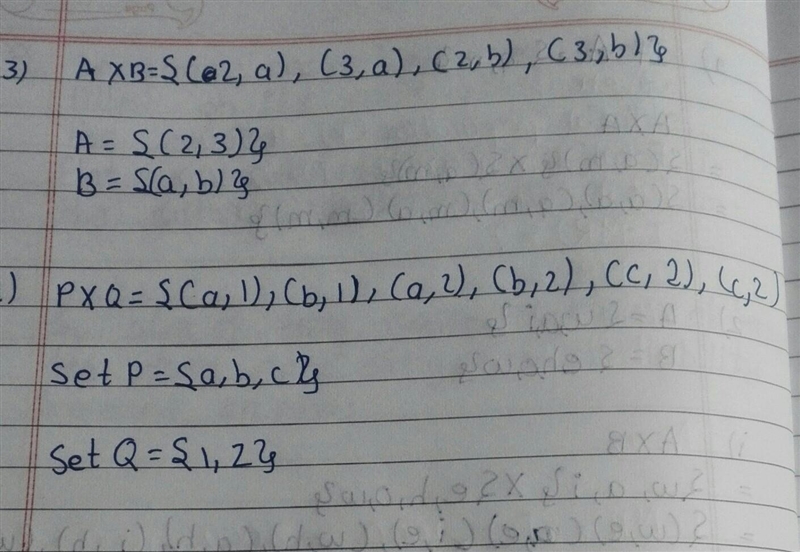 3) A X B = {(2, a), (3, a), (2, b), (3, b)}
A = {(2, 3)}
B = {(a, b)}
) P X Q = {(a, 1), (b, 1), (a, 2), (b, 2), (c, 2), (c, 2)
Set P = {a, b, c}
Set Q = {1, 2}